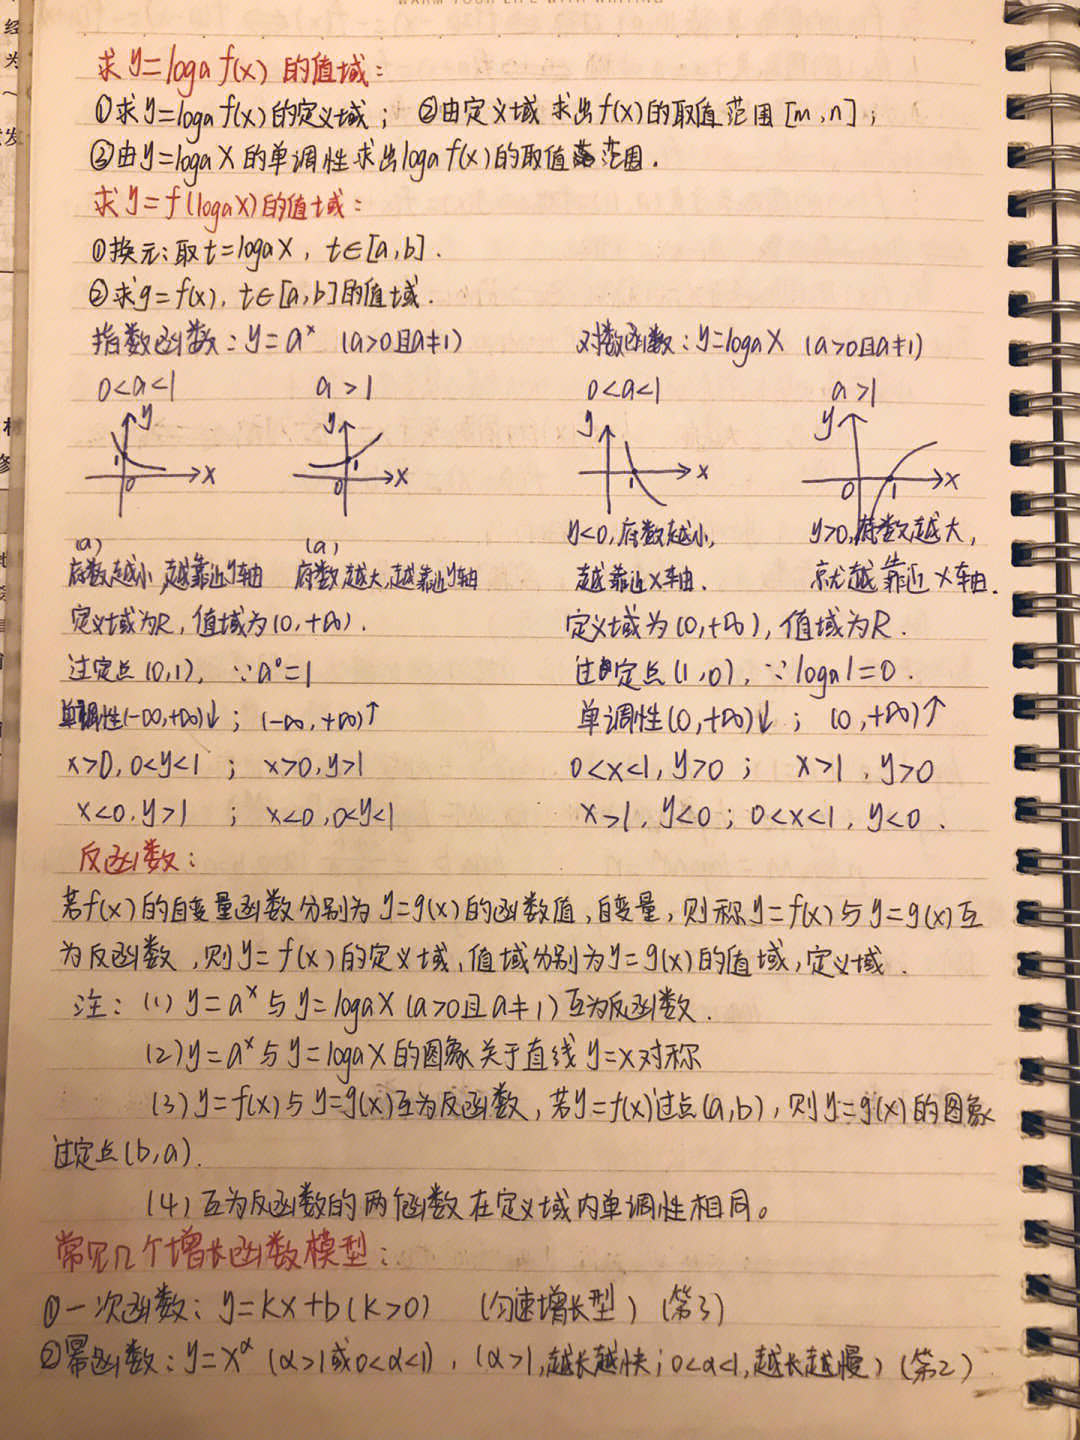 WARM YOUR LIFE WITH WRITING
求y=logₐf(x)的值域：
①求y=logₐf(x)的定义域； ②由定义域求出f(x)的取值范围[m,n]；
③由y=logₐX的单调性求出logₐf(x)的取值范围.
求y=f(logₐX)的值域：
①换元:取t=logₐX，t∈[a,b].
②求y=f(x), t∈[a,b]的值域.
指数函数：y=aˣ (a>0且a≠1) 对数函数：y=logₐX (a>0且a≠1)
0<a<1 a>1 0<a<1 a>1
y y y y
1 0 x 1 0 x 1 x 0 1 x
y<0,底数越小, y>0,底数越大,
(a) (a)
底数越小,越靠近y轴 底数越大,越靠近y轴 越靠近X轴. 就越靠近X轴.
定义域为R, 值域为(0,+∞). 定义域为(0,+∞), 值域为R.
过定点(0,1), ∵a⁰=1 过定点(1,0), ∵logₐ1=0.
单调性(-∞,+∞)↓； (-∞,+∞)↑ 单调性(0,+∞)↓； (0,+∞)↑
x>0,0<y<1 ； x>0,y>1 0<x<1,y>0； x>1,y>0
x<0,y>1 ； x<0,0<y<1 x>1,y<0；0<x<1,y<0.
反函数：
若f(x)的自变量函数分别为y=g(x)的函数值,自变量,则称y=f(x)与y=g(x)互
为反函数,则y=f(x)的定义域、值域分别为y=g(x)的值域,定义域.
注：(1) y=aˣ与y=logₐX(a>0且a≠1)互为反函数.
(2)y=aˣ与y=logₐX的图象关于直线y=x对称
(3)y=f(x)与y=g(x)互为反函数,若y=f(x)过点(a,b),则y=g(x)的图象
过定点(b,a).
(4)互为反函数的两个函数在定义域内单调性相同。
常见几个增长函数模型：
①一次函数：y=kx+b(k>0) (匀速增长型)(第3)
②幂函数：y=x^α(α>1或0<α<1),(α>1,越长越快；0<α<1,越长越慢)(第2)